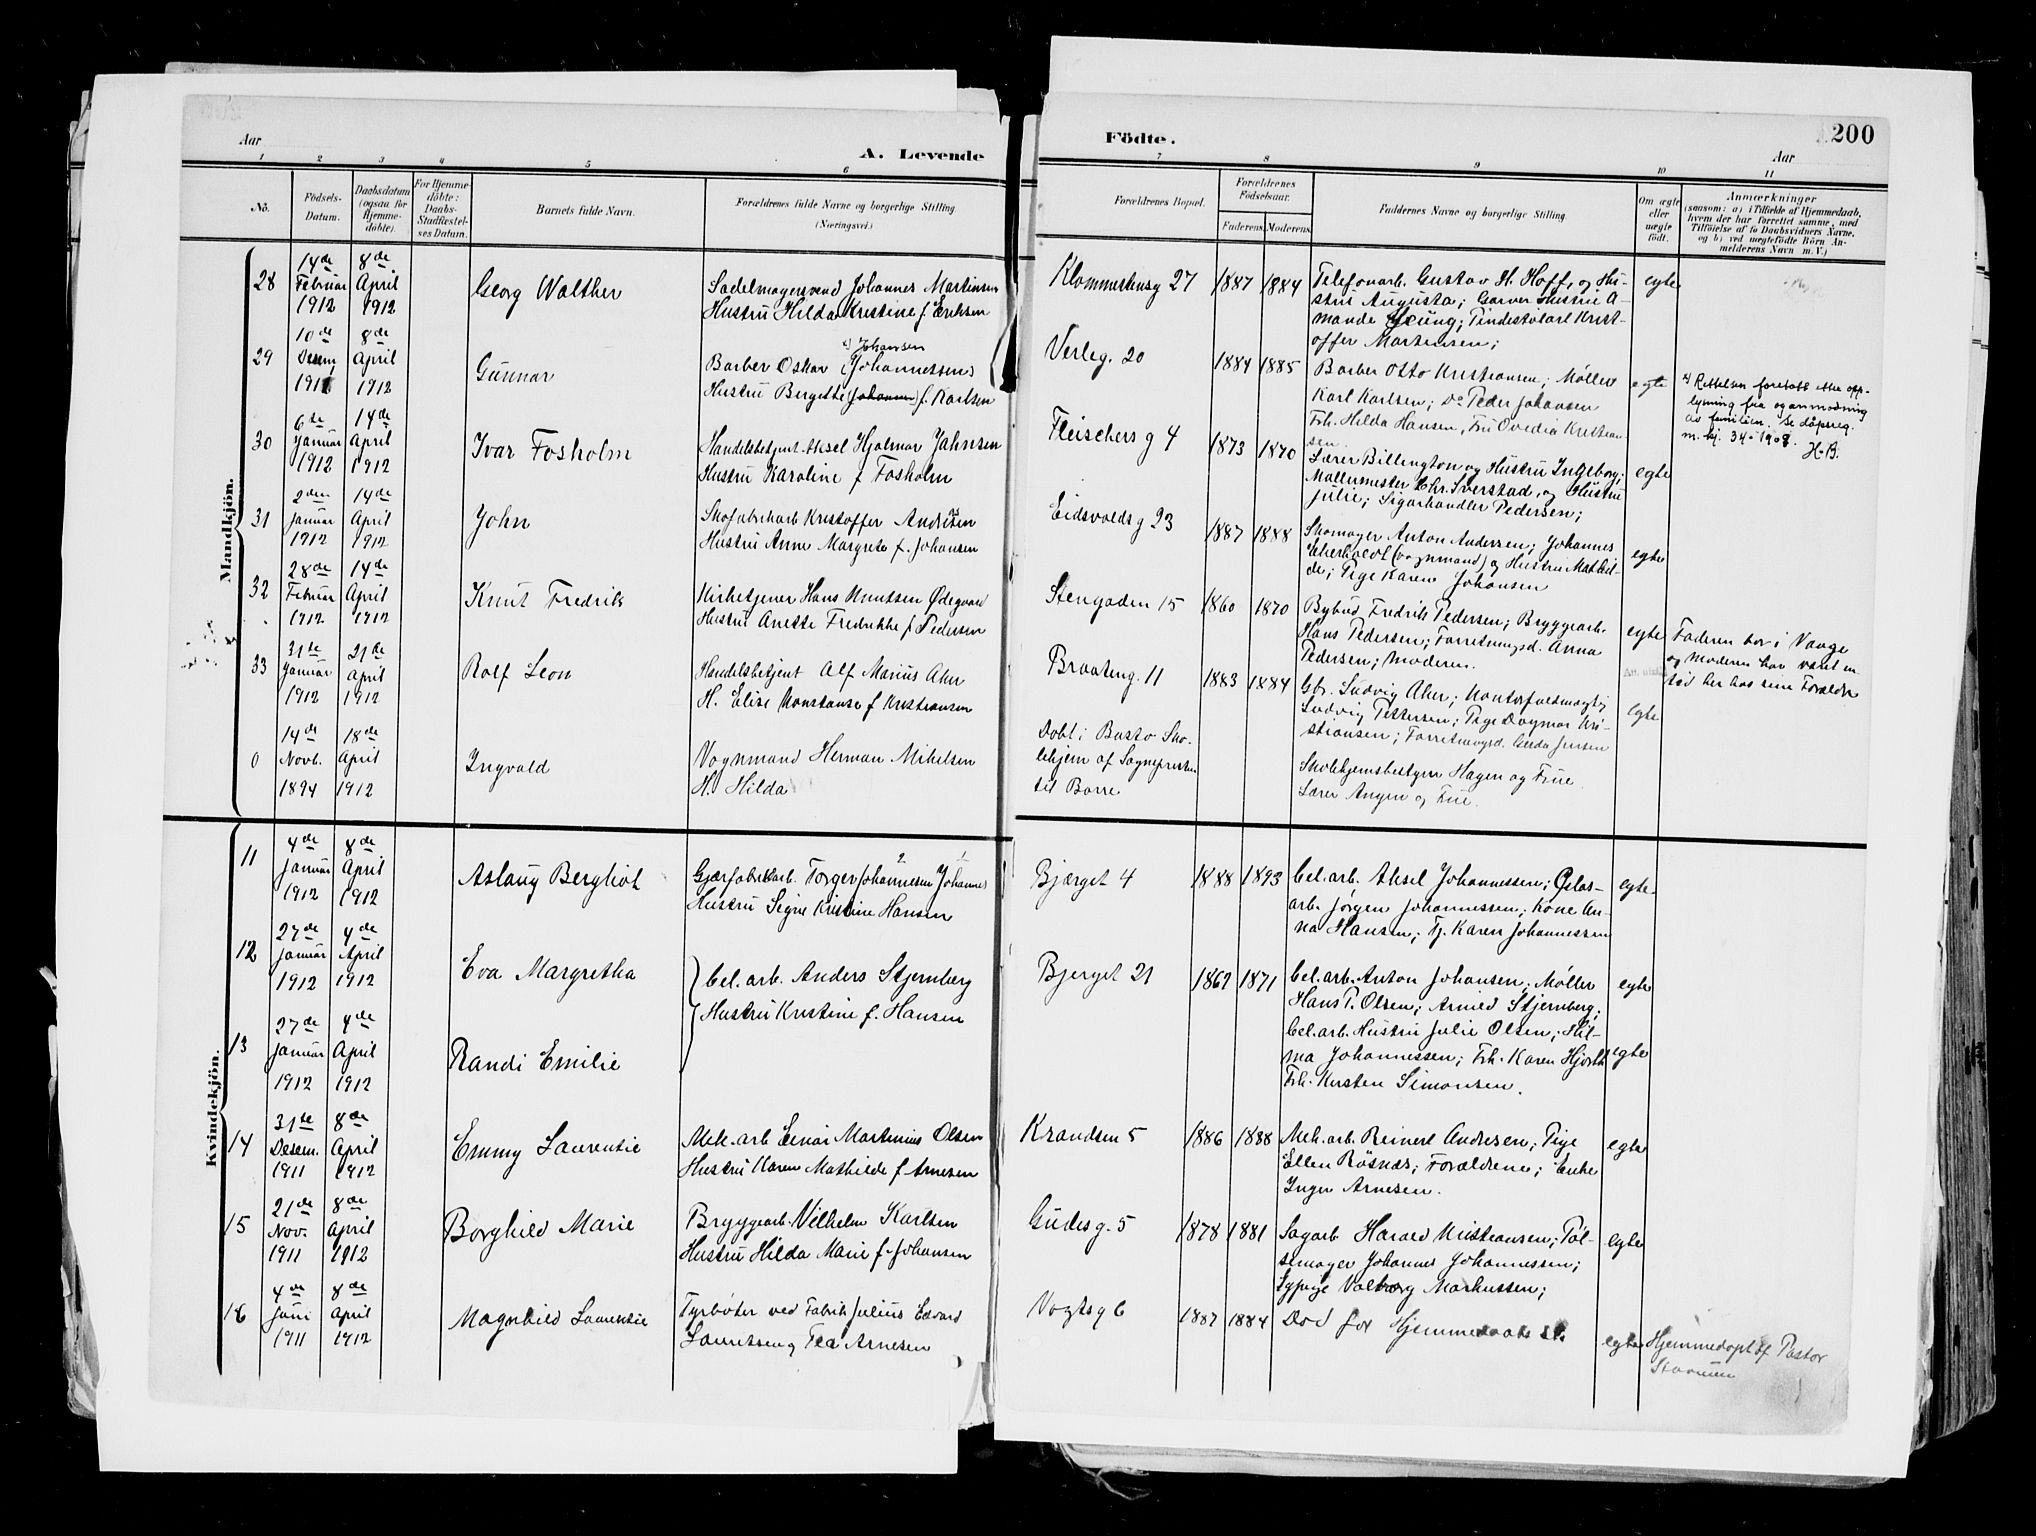 Aar
A. Levende
1 2 3 4 5 6
Nò.
Födsels-
Datum.
Daabsdatum
(ogsaa for
Hjemme-
döbte).
For Hjemme-
döbte:
Daabs-
Stadfæstel-
ses Datum.
Barnets fulde Navn.
Forældrenes fulde Navne og borgerlige Stilling
(Næringsvei.)
Mandkjön.
28
14de
Februar
1912
8de
April
1912
Georg Walther
Sadelmagersvend Johannes Martinsen
Hustru Hilda Kristine f. Eriksen
29
10de
Desem
1911
8de
April
1912
Gunnar
x) Johansen
Barber Oskar (Johannessen)
Hustru Bergette (Johansen) f. Karlsen
30
6te
Januar
1912
14de
April
1912
Ivar Fosholm
Handelsbetjent Aksel Hjalmar Jahnsen
Hustru Karoline f Fosholm
31
2den
Januar
1912
14de
April
1912
John
Skofabrikarb Kristoffer Andresen
Hustru Anne Margrete f. Johansen
32
28de
Februar
1912
14de
April
1912
Knut Fredrik
Kirketjener Hans Knutsen Ødegaard
Hustru Anette Fredrikke f Pedersen
33
31te
Januar
1912
21de
April
1912
Rolf Leon
Handelsbetjent Alf Marius Aker
H. Elise Konstanse f Kristiansen
0
14de
Novb.
1894
18de
April
1912
Ingvald
Vognmand Herman Mikelsen
H. Hilda
Kvindekjön.
11
4de
Januar
1912
8de
April
1912
Aslaug Bergliot
2 1
Gjærfabrikarb. Torger Johannesen Johannes
Hustru Signe Kristine Hansen
12
27de
Januar
1912
4de
April
1912
Eva Margretha
Cel. arb. Anders Stjernberg
Hustru Kristine f. Hansen
13
27de
Januar
1912
4de
April
1912
Randi Emilie
14
31te
Desem.
1911
8de
April
1912
Emmy Laurentie
Mek. arb Einar Martinius Olsen
Hustru Karen Mathilde f Arnesen
15
21de
Nov.
1911
8de
April
1912
Borghild Marie
Bryggearb. Vilhelm Karlsen
Hustru Hilda Marie f. Johansen
16
4de
Juni
1911
8de
April
1912
Magnhild Laurentie
Fyrbøter ved Fabrik Julius Edvard
Lauritsen og Tea Arnesen
Födte.
200
Aar
7 8 9 10 11
Forældrenes Bopæl.
Forældrenes
Födselsaar.
Faderens. Moderens.
Faddernes Navne og borgerlige Stilling.
Om ægte
eller
uægte
födt.
Anmærkninger
(saasom: a) i Tilfælde af Hjemmedaab,
hvem der har forrettet samme, med
Tilföielse af to Daabsvidners Navne,
og b) ved uægtefödte Börn An-
melderens Navn m. V.)
Klommestensg 27
1887
1884
Telefonarb. Gustav H. Hoff, og Hu-
stru Augusta; Garver Hustru A-
mande Ljeung; Pindestolarb Krist-
offer Martensen;
egte
Verleg. 20
1884
1885
Barber Otto Kristiansen; Møller
Karl Karlsen; Do Peder Johansen
Frk. Hilda Hansen, Fru Ovedia Kristian-
sen.
egte
x) Rettelsen foretatt etter opp-
lysning fra og anmodning
av familien. Se döpreg.
m.kj. 34-1908.
H.B.
Fleischers g 4
1873
1870
Lærer Billington og Hustru Ingeborg;
Møllermester Chr. Sverstad, og Hustru
Julie; Sigarhandler Pedersen;
egte
Eidsvolds g 23
1887
1888
Skomager Anton Andersen; Johannes
Ekerholdt (vognmand) og Hustru Mathil-
de; Pige Karen Johansen
egte
Stengaden 15
1860
1870
Bybud Fredrik Pedersen; Bryggearb.
Hans Pedersen; Forretningsd. Anna
Pedersen; Moderen.
egte
Faderen bor i Vaage
og Moderen har været en
tid her hos sine Forældre
Braateng. 11
1883
1884
Gbr. Ludvig Aker; Kontorfuldmægtig
Ludvig Pettersen; Pige Dagmar Kri-
stiansen; Forretningsd. Gerda Jensen
egte
Døbt i Bastø Sko-
lehjem af Sognepresten
til Borre
Skolehjemsbestyrer Hagen og Frue
Lærer Angen og Frue.
Bjerget 4
1888
1893
Cel. arb. Aksel Johannessen; Oplas-
arb. Jørgen Johannessen; Kone An-
na Hansen; Tj. Karen Johannessen
egte
Bjerget 21
1867
1871
Cel. arb. Anton Johansen; Møller
Hans P. Olsen; Arnild Stjernberg;
Cel. arb. Hustru Julie Olsen; Hil-
ma Johannessen; Frk. Karen Hjorth
Frk. Kirsten Simonsen.
egte
egte
Krandsen 5
1886
1888
Mek. arb. Reinert Andresen; Pige
Ellen Røsnæs; Forældrene; Enke
Inger Arnesen.
egte
Gudes g. 5
1878
1881
Sagarb Harald Kristiansen; Pøl-
semager Johannes Johannessen;
Sypige Valborg Markussen;
egte
Vogts g 6
1887
1884
Død før
egte
Hjemmedøpt af Pastor